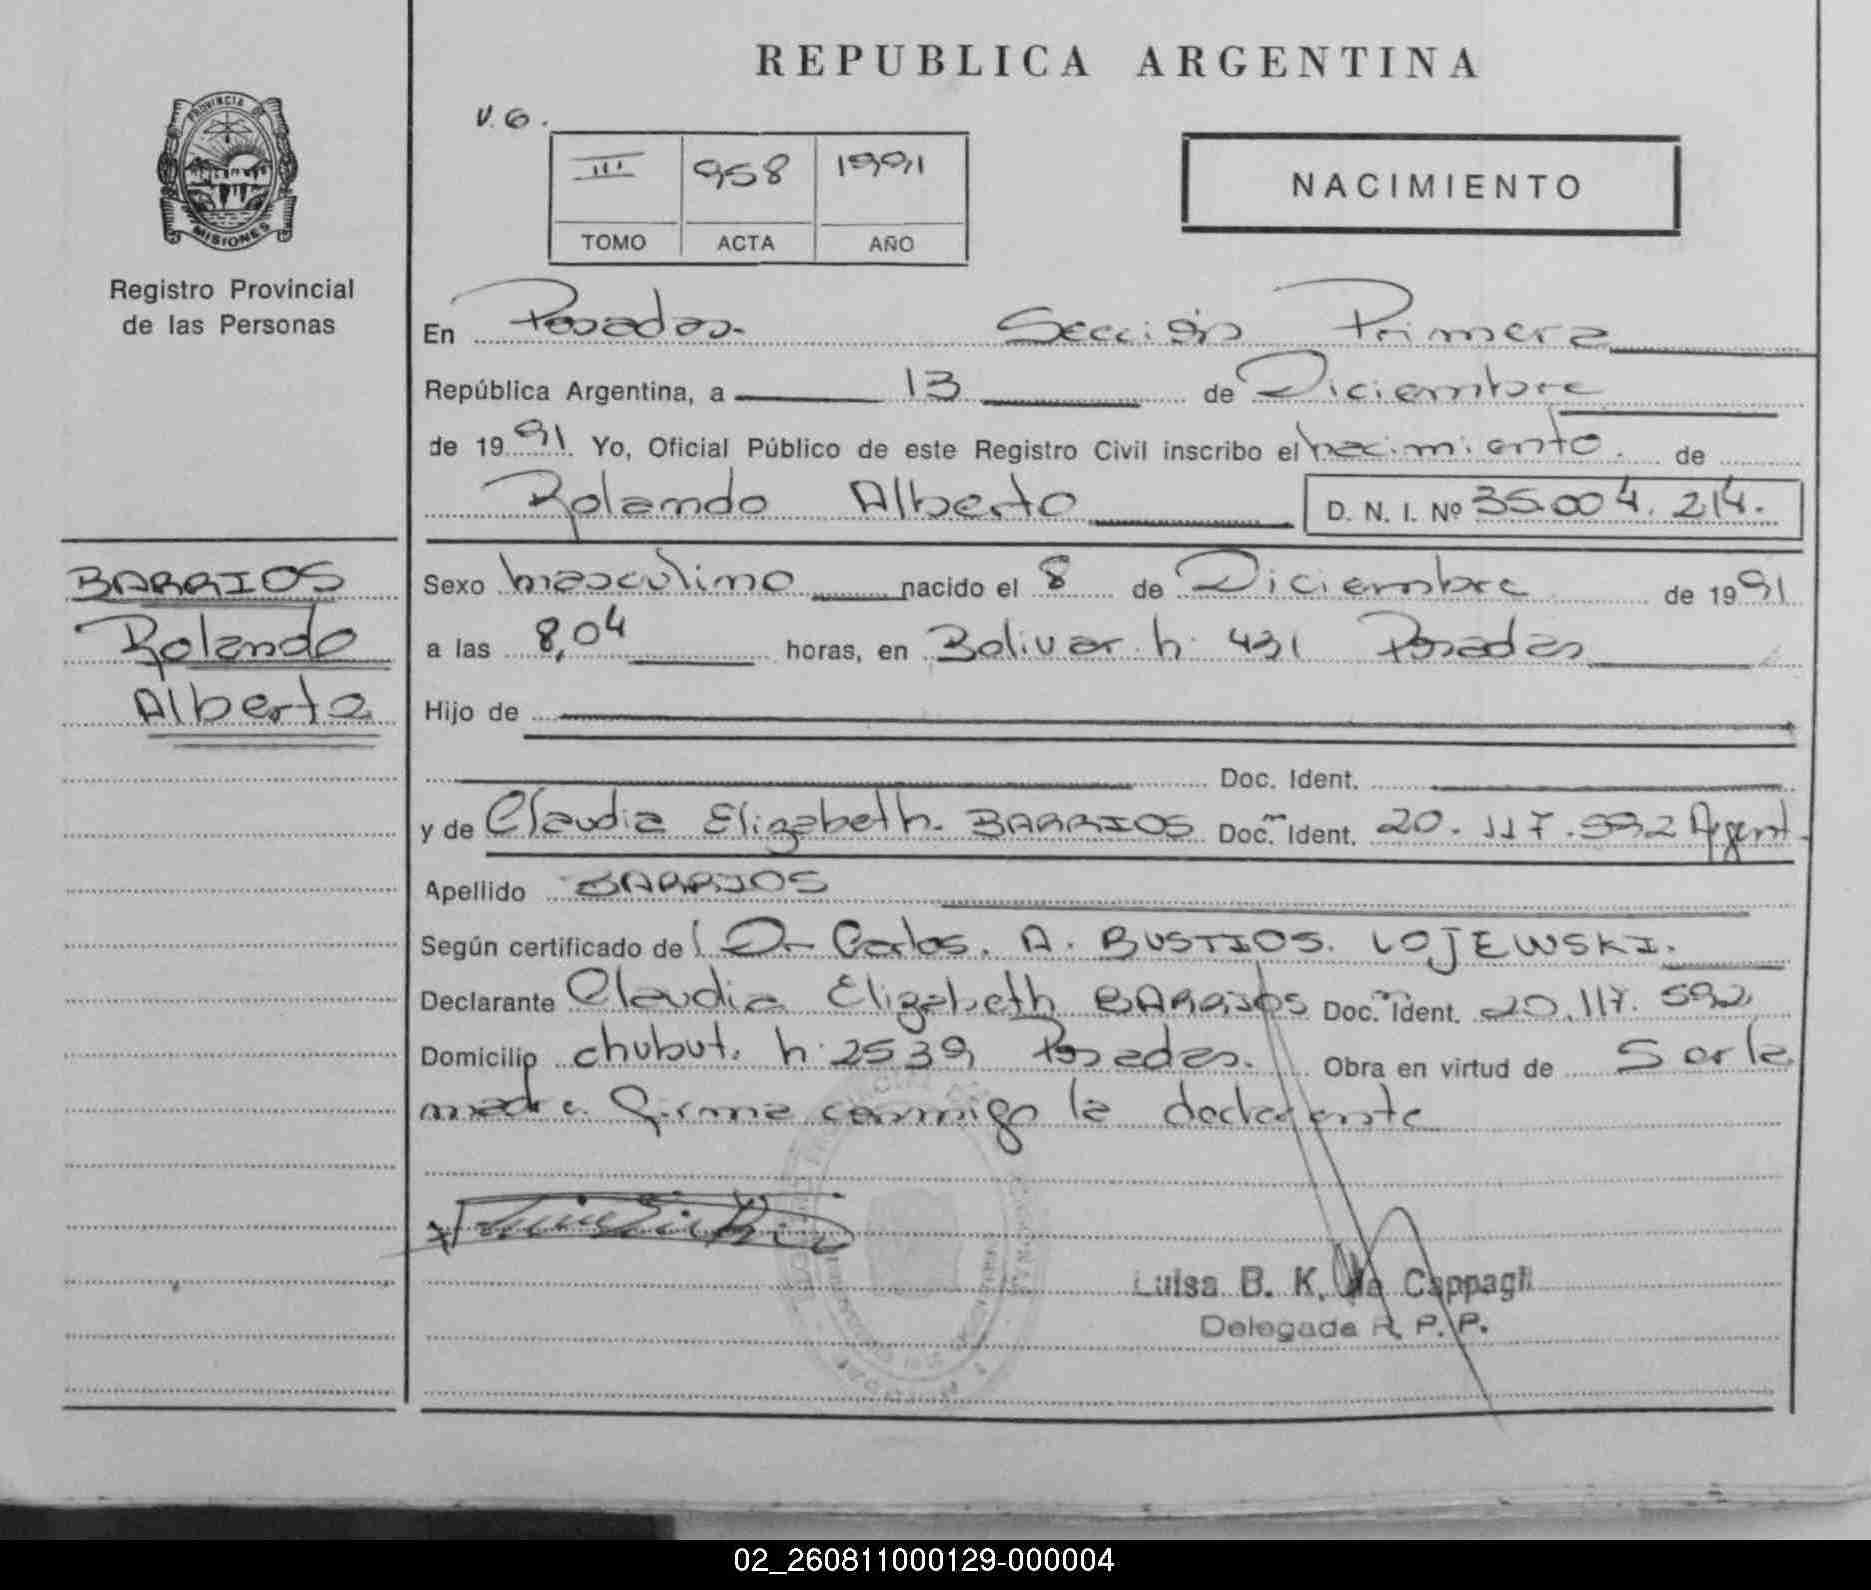 REPUBLICA ARGENTINA
V.G.
PROVINCIA DE
MISIONES
III 958 1991
TOMO ACTA AÑO
NACIMIENTO
Registro Provincial
de las Personas
En Posadas. Sección Primera
República Argentina, a 13 de Diciembre
de 1991 Yo, Oficial Público de este Registro Civil inscribo el nacimiento. de
Rolando Alberto D. N. I. Nº 35.004.214.
BARRIOS
Rolando
Alberto
Sexo masculino nacido el 8 de Diciembre de 1991
a las 8,04 horas, en Bolivar h. 431 Posadas
Hijo de
Doc. Ident.
y de Claudia Elizabeth. BARRIOS Doc. Ident. 20.117.592 Argent.
Apellido BARRIOS
Según certificado del Dr Carlos. A. BUSTIOS. LOJEWSKI.
Declarante Claudia Elizabeth BARRIOS Doc. Ident. 20.117.592
Domicilio chubut. h. 2539 Posadas. Obra en virtud de Ser la
madre. Firma conmigo la declarante
Luisa B. K. de Cappagli
Delegada R. P. P.
02_260811000129-000004